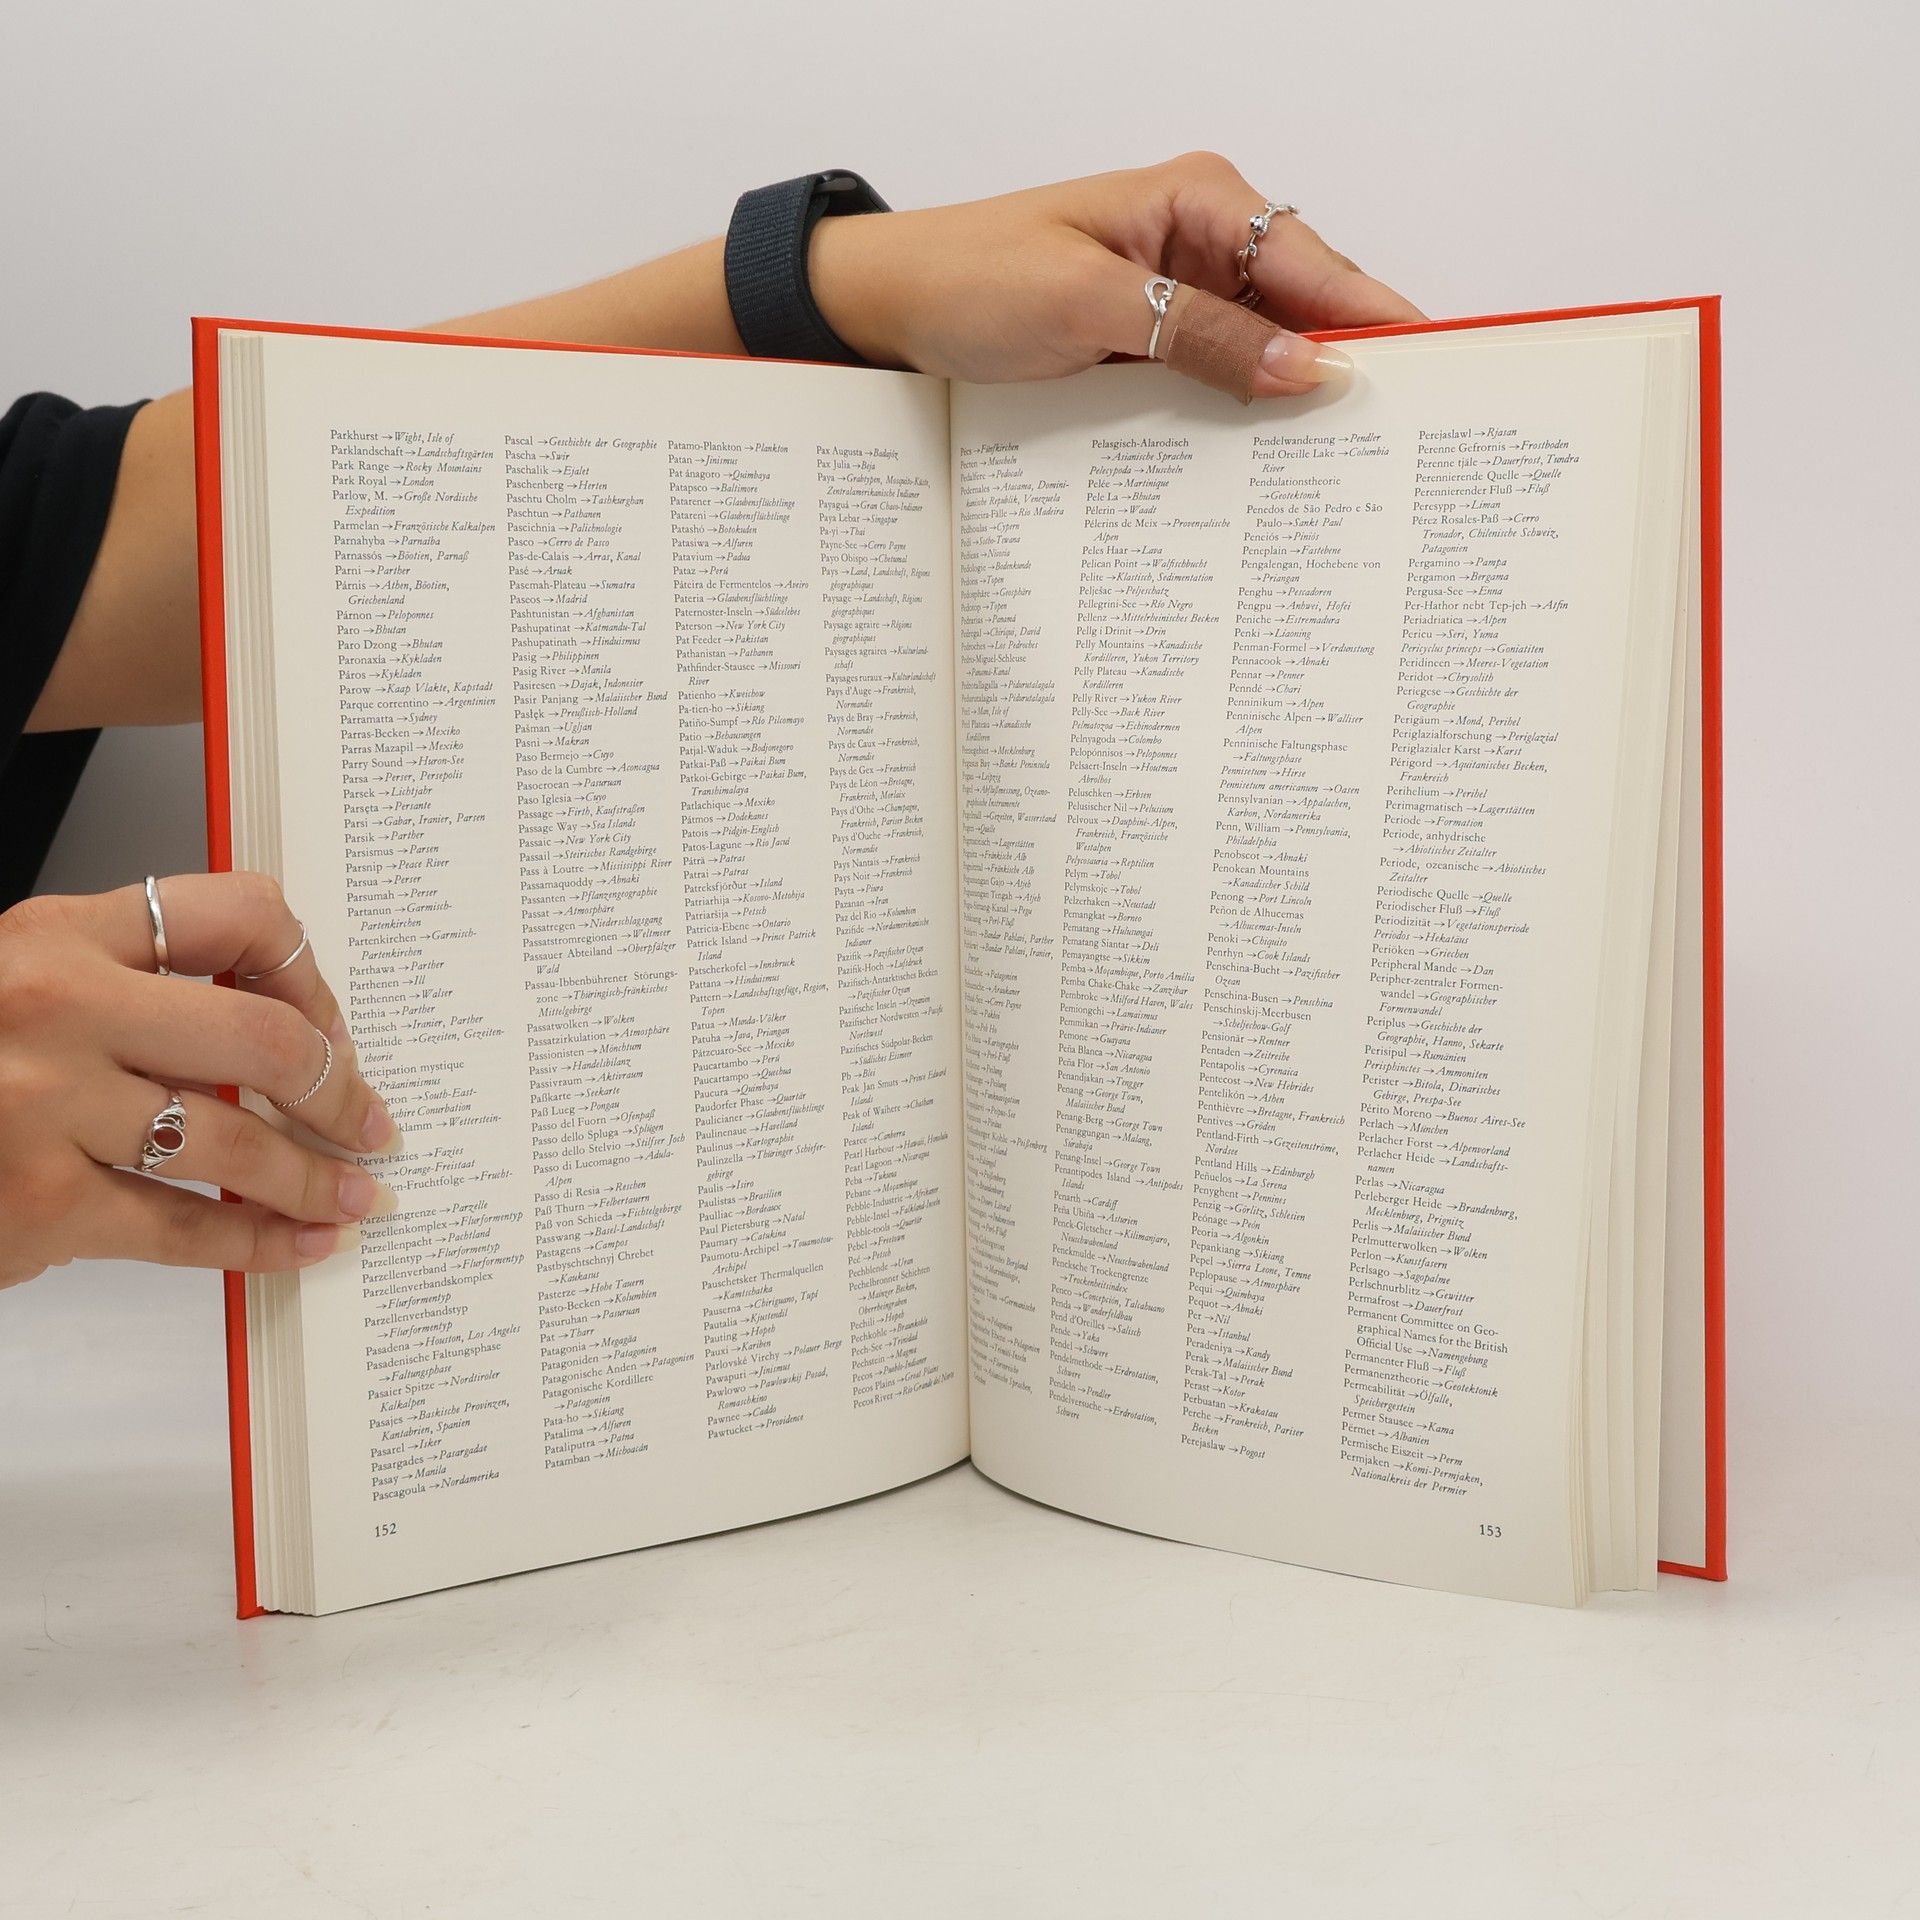 Parkhurst → Wight, Isle of
Parklandschaft → Landschaftsgärten
Park Range → Rocky Mountains
Park Royal → London
Parlow, M. → Große Nordische
Expedition
Parmelan → Französische Kalkalpen
Parnahyba → Parnaíba
Parnassós → Böotien, Parnaß
Parni → Parther
Párnis → Athen, Böotien,
Griechenland
Párnon → Peloponnes
Paro → Bhutan
Paro Dzong → Bhutan
Paronaxía → Kykladen
Páros → Kykladen
Parow → Kaap Vlakte, Kapstadt
Parque correntino → Argentinien
Parramatta → Sydney
Parras-Becken → Mexiko
Parras Mazapil → Mexiko
Parry Sound → Huron-See
Parsa → Perser, Persepolis
Parsek → Lichtjahr
Parsęta → Persante
Parsi → Gabar, Iranier, Parsen
Parsik → Parther
Parsismus → Parsen
Parsnip → Peace River
Parsua → Perser
Parsumah → Perser
Partanun → Garmisch-
Partenkirchen
Partenkirchen → Garmisch-
Partenkirchen
Parthawa → Parther
Parthenen → Ill
Parthennen → Walser
Parthia → Parther
Parthisch → Iranier, Parther
Partialtide → Gezeiten, Gezeiten-
theorie
articipation mystique
→ Präanimismus
→ South-East-
Conurbation
klamm → Wetterstein-
Parva-Fazies → Fazies
→ Orange-Freistaat
-Fruchtfolge → Frucht-
Parzellengrenze → Parzelle
Parzellenkomplex → Flurformentyp
Parzellenpacht → Pachtland
Parzellentyp → Flurformentyp
Parzellenverband → Flurformentyp
Parzellenverbandskomplex
→ Flurformentyp
Parzellenverbandstyp
→ Flurformentyp
Pasadena → Houston, Los Angeles
Pasadenische Faltungsphase
→ Faltungsphase
Pasaier Spitze → Nordtiroler
Kalkalpen
Pasajes → Baskische Provinzen,
Kantabrien, Spanien
Pasarel → Isker
Pasargades → Pasargadae
Pasay → Manila
Pascagoula → Nordamerika
Pascal → Geschichte der Geographie
Pascha → Swir
Paschalik → Ejalet
Paschenberg → Herten
Paschtu Cholm → Tashkurghan
Paschtun → Pathanen
Pascichnia → Palichnologie
Pasco → Cerro de Pasco
Pas-de-Calais → Arras, Kanal
Pasé → Aruak
Pasemah-Plateau → Sumatra
Paseos → Madrid
Pashtunistan → Afghanistan
Pashupatinat → Katmandu-Tal
Pashupatinath → Hinduismus
Pasig → Philippinen
Pasig River → Manila
Pasiresen → Dajak, Indonesier
Pasir Panjang → Malaiischer Bund
Pasłęk → Preußisch-Holland
Pašman → Ugljan
Pasni → Makran
Paso Bermejo → Cuyo
Paso de la Cumbre → Aconcagua
Pasoeroean → Pasuruan
Paso Iglesia → Cuyo
Passage → Firth, Kaufstraßen
Passage Way → Sea Islands
Passaic → New York City
Passail → Steirisches Randgebirge
Pass à Loutre → Mississippi River
Passamaquoddy → Abnaki
Passanten → Pflanzengeographie
Passat → Atmosphäre
Passatregen → Niederschlagsgang
Passatstromregionen → Weltmeer
Passauer Abteiland → Oberpfälzer
Wald
Passau-Ibbenbührener Störungs-
zone → Thüringisch-fränkisches
Mittelgebirge
Passatwolken → Wolken
Passatzirkulation → Atmosphäre
Passionisten → Mönchtum
Passiv → Handelsbilanz
Passivraum → Aktivraum
Paßkarte → Seekarte
Paß Lueg → Pongau
Passo del Fuorn → Ofenpaß
Passo dello Spluga → Splügen
Passo dello Stelvio → Stilfser Joch
Passo di Lucomagno → Adula-
Alpen
Passo di Resia → Reschen
Paß Thurn → Felbertauern
Paß von Schieda → Fichtelgebirge
Passwang → Basel-Landschaft
Pastagens → Campos
Pastbyschtschnyj Chrebet
→ Kaukasus
Pasterze → Hohe Tauern
Pasto-Becken → Kolumbien
Pasuruhan → Pasuruan
Pat → Tharr
Patagonia → Megagäa
Patagoniden → Patagonien
Patagonische Anden → Patagonien
Patagonische Kordillere
→ Patagonien
Pata-ho → Sikiang
Patalima → Alfuren
Pataliputra → Patna
Patamban → Michoacán
Patamo-Plankton → Plankton
Patan → Jinismus
Pat ánagoro → Quimbaya
Patapsco → Baltimore
Patarener → Glaubensflüchtlinge
Patareni → Glaubensflüchtlinge
Patashó → Botokuden
Patasiwa → Alfuren
Patavium → Padua
Pataz → Perú
Páteira de Fermentelos → Aveiro
Pateria → Glaubensflüchtlinge
Paternoster-Inseln → Südcelebes
Paterson → New York City
Pat Feeder → Pakistan
Pathanistan → Pathanen
Pathfinder-Stausee → Missouri
River
Patienho → Kweichow
Pa-tien-ho → Sikiang
Patiño-Sumpf → Río Pilcomayo
Patio → Behausungen
Patjal-Waduk → Bodjonegoro
Patkai-Paß → Paikai Bum
Patkoi-Gebirge → Paikai Bum,
Transhimalaya
Patlachique → Mexiko
Pátmos → Dodekanes
Patois → Pidgin-English
Patos-Lagune → Rio Jacuí
Páträ → Patras
Patrai → Patras
Patreksfjördur → Island
Patriarhija → Kosovo-Metohija
Patriaršija → Petsch
Patricia-Ebene → Ontario
Patrick Island → Prince Patrick
Island
Patscherkofel → Innsbruck
Pattana → Hinduismus
Pattern → Landschaftsgefüge, Region,
Topen
Patua → Munda-Völker
Patuha → Java, Priangan
Pátzcuaro-See → Mexiko
Paucartambo → Perú
Paucartampo → Quechua
Paucura → Quimbaya
Paudorfer Phase → Quartär
Paulicianer → Glaubensflüchtlinge
Paulinenaue → Havelland
Paulinus → Kartographie
Paulinzella → Thüringer Schiefer-
gebirge
Paulis → Isiro
Paulistas → Brasilien
Paulliac → Bordeaux
Paul Pietersburg → Natal
Paumary → Catukina
Paumotu-Archipel → Touamotou-
Archipel
Pauschetsker Thermalquellen
→ Kamtschatka
Pauserna → Chiriguano, Tupí
Pautalia → Kjustendil
Pauting → Hopeh
Pauxi → Kariben
Pavlovské Virchy → Polauer Berge
Pawapuri → Jinismus
Pawlowo → Pawlowskij Posad,
Romaschkino
Pawnee → Caddo
Pawtucket → Providence
Pax Augusta → Badajoz
Pax Julia → Beja
Paya → Grabtypen, Mosquito-Küste,
Zentralamerikanische Indianer
Payaguá → Gran Chaco-Indianer
Paya Lebar → Singapur
Pa-yi → Thai
Payne-See → Cerro Payne
Payo Obispo → Chetumal
Pays → Land, Landschaft, Régions
géographiques
Paysage → Landschaft, Régions
géographiques
Paysage agraire → Régions
géographiques
Paysages agraires → Kulturland-
schaft
Paysages ruraux → Kulturlandschaft
Pays d'Auge → Frankreich,
Normandie
Pays de Bray → Frankreich,
Normandie
Pays de Caux → Frankreich,
Normandie
Pays de Gex → Frankreich
Pays de Léon → Bretagne,
Frankreich, Morlaix
Pays d'Othe → Champagne,
Frankreich, Pariser Becken
Pays d'Ouche → Frankreich,
Normandie
Pays Nantais → Frankreich
Pays Noir → Frankreich
Payta → Piura
Pazanan → Iran
Paz del Rio → Kolumbien
Pazifide → Nordamerikanische
Indianer
Pazifik → Pazifischer Ozean
Pazifik-Hoch → Luftdruck
Pazifisch-Antarktisches Becken
→ Pazifischer Ozean
Pazifische Inseln → Ozeanien
Pazifischer Nordwesten → Pacific
Northwest
Pazifisches Südpolar-Becken
→ Südliches Eismeer
Pb → Blei
Peak Jan Smuts → Prince Edward
Islands
Peak of Waihere → Chatham
Islands
Pearce → Canberra
Pearl Harbour → Hawaii, Honolulu
Pearl Lagoon → Nicaragua
Peba → Tukuna
Pebane → Moçambique
Pebble-Industrie → Afrikaner
Pebble-Insel → Falkland-Inseln
Pebble-tools → Quartär
Pebel → Freetown
Peć → Petsch
Pechblende → Uran
Pechelbronner Schichten
→ Mainzer Becken,
Oberrheingraben
Pechili → Hopeh
Pechkohle → Braunkohle
Pech-See → Trinidad
Pechstein → Magma
Pecos → Pueblo-Indianer
Pecos Plains → Great Plains
Pecos River → Rio Grande del Norte
152
Pécs → Fünfkirchen
Pecten → Muscheln
Pedalfere → Pedocale
Pedernales → Atacama, Domini-
kanische Republik, Venezuela
Pederneira-Fälle → Rio Madeira
Pedhoulas → Cypern
Pedi → Sotho-Tswana
Pedologie → Bodenkunde
Pedons → Topen
Pedosphäre → Geosphäre
Pedotop → Topen
Pedrarias → Panamá
Pedregal → Chiriquí, David
Pedroches → Los Pedroches
Pedro-Miguel-Schleuse
→ Panamá-Kanal
Pedrotallagalla → Pidurutalagala
Pedurutalagala → Pidurutalagala
Peel → Man, Isle of
Peel Plateau → Kanadische
Kordilleren
Peenegebiet → Mecklenburg
Pegasus Bay → Banks Peninsula
Pegau → Leipzig
Pegel → Abflußmessung, Ozeano-
graphische Instrumente
Pegelnull → Gezeiten, Wasserstand
Pegmatitisch → Lagerstätten
Pegnitz → Fränkische Alb
Pelasgisch-Alarodisch
→ Asianische Sprachen
Pelecypoda → Muscheln
Pelée → Martinique
Pele La → Bhutan
Pélerin → Waadt
Pélerins de Meix → Provençalische
Alpen
Peles Haar → Lava
Pelican Point → Walfischbucht
Pelite → Klastisch, Sedimentation
Pelješac → Peljeschatz
Pellegrini-See → Río Negro
Pellenz → Mittelrheinisches Becken
Pellg i Drinit → Drin
Pelly Mountains → Kanadische
Kordilleren, Yukon Territory
Pelly Plateau → Kanadische
Kordilleren
Pelly River → Yukon River
Pelly-See → Back River
Pelmatozoa → Echinodermen
Pelnyagoda → Colombo
Pelopónnisos → Peloponnes
Pelsaert-Inseln → Houtman
Abrolhos
Peluschken → Erbsen
Pelusischer Nil → Pelusium
Pelvoux → Dauphiné-Alpen,
Frankreich, Französische
Westalpen
Pelycosauria → Reptilien
Pelym → Tobol
Pelymskoje → Tobol
Pelzerhaken → Neustadt
Pemangkat → Borneo
Pematang → Hulusungai
Pematang Siantar → Deli
Pemayangtse → Sikkim
Pemba → Moçambique, Porto Amélia
Pemba Chake-Chake → Zanzibar
Pembroke → Milford Haven, Wales
Pemiongchi → Lamaismus
Pemmikan → Prärie-Indianer
Pemone → Guayana
Peña Blanca → Nicaragua
Peña Flor → San Antonio
Penandjakan → Tengger
Penang → George Town,
Malaiischer Bund
Penang-Berg → George Town
Penanggungan → Malang,
Surabaja
Penang-Insel → George Town
Penantipodes Island → Antipodes
Islands
Penarth → Cardiff
Peña Ubiña → Asturien
Penck-Gletscher → Kilimanjaro,
Neuschwabenland
Penckmulde → Neuschwabenland
Pencksche Trockengrenze
→ Trockenheitsindex
Penco → Concepción, Talcahuano
Penda → Wanderfeldbau
Pend d'Oreilles → Salisch
Pende → Yaka
Pendel → Schwere
Pendelmethode → Erdrotation,
Schwere
Pendeln → Pendler
Pendelversuche → Erdrotation,
Schwere
Pendelwanderung → Pendler
Pend Oreille Lake → Columbia
River
Pendulationstheorie
→ Geotektonik
Penedos de São Pedro e São
Paulo → Sankt Paul
Penciós → Piniós
Peneplain → Fastebene
Pengalengan, Hochebene von
→ Priangan
Penghu → Pescadoren
Pengpu → Anhwei, Hofei
Peniche → Estremadura
Penki → Liaoning
Penman-Formel → Verdunstung
Pennacook → Abnaki
Pennar → Penner
Penndé → Chari
Penninikum → Alpen
Penninische Alpen → Walliser
Alpen
Penninische Faltungsphase
→ Faltungsphase
Pennisetum → Hirse
Pennisetum americanum → Oasen
Pennsylvanian → Appalachen,
Karbon, Nordamerika
Penn, William → Pennsylvania,
Philadelphia
Penobscot → Abnaki
Penokean Mountains
→ Kanadischer Schild
Penong → Port Lincoln
Peñon de Alhucemas
→ Alhucemas-Inseln
Penoki → Chiquito
Penrhyn → Cook Islands
Penschina-Bucht → Pazifischer
Ozean
Penschina-Busen → Penschina
Penschinskij-Meerbusen
→ Scheljechow-Golf
Pensionär → Rentner
Pentaden → Zeitreihe
Pentapolis → Cyrenaica
Pentecost → New Hebrides
Pentelikón → Athen
Penthièvre → Bretagne, Frankreich
Pentives → Gröden
Pentland-Firth → Gezeitenströme,
Nordsee
Pentland Hills → Edinburgh
Peñuelos → La Serena
Penyghent → Pennines
Penzig → Görlitz, Schlesien
Peónage → Peón
Peoria → Algonkin
Pepankiang → Sikiang
Pepel → Sierra Leone, Temne
Peplopause → Atmosphäre
Pequi → Quimbaya
Pequot → Abnaki
Per → Nil
Pera → Istanbul
Peradeniya → Kandy
Perak → Malaiischer Bund
Perak-Tal → Perak
Perast → Kotor
Perbuatan → Krakatau
Perche → Frankreich, Pariser
Becken
Perejaslaw → Pogost
Perejaslawl → Rjasan
Perenne Gefrornis → Frostboden
Perenne tjäle → Dauerfrost, Tundra
Perennierende Quelle → Quelle
Perennierender Fluß → Fluß
Peresypp → Liman
Pérez Rosales-Paß → Cerro
Tronador, Chilenische Schweiz,
Patagonien
Pergamino → Pampa
Pergamon → Bergama
Pergusa-See → Enna
Per-Hathor nebt Tep-jeh → Atfin
Periadriatica → Alpen
Pericu → Seri, Yuma
Pericyclus princeps → Goniatiten
Peridineen → Meeres-Vegetation
Peridot → Chrysolith
Periegese → Geschichte der
Geographie
Perigäum → Mond, Perihel
Periglazialforschung → Periglazial
Periglazialer Karst → Karst
Périgord → Aquitanisches Becken,
Frankreich
Perihelium → Perihel
Perimagmatisch → Lagerstätten
Periode → Formation
Periode, anhydrische
→ Abiotisches Zeitalter
Periode, ozeanische → Abiotisches
Zeitalter
Periodische Quelle → Quelle
Periodischer Fluß → Fluß
Periodizität → Vegetationsperiode
Periodos → Hekatäus
Periöken → Griechen
Peripheral Mande → Dan
Peripher-zentraler Formen-
wandel → Geographischer
Formenwandel
Periplus → Geschichte der
Geographie, Hanno, Sekarte
Perisipul → Rumänien
Perisphinctes → Ammoniten
Perister → Bitola, Dinarisches
Gebirge, Prespa-See
Périto Moreno → Buenos Aires-See
Perlach → München
Perlacher Forst → Alpenvorland
Perlacher Heide → Landschafts-
namen
Perlas → Nicaragua
Perleberger Heide → Brandenburg,
Mecklenburg, Prignitz
Perlis → Malaiischer Bund
Perlmutterwolken → Wolken
Perlon → Kunstfasern
Perlsago → Sagopalme
Perlschnurblitz → Gewitter
Permafrost → Dauerfrost
Permanent Committee on Geo-
graphical Names for the British
Official Use → Namengebung
Permanenter Fluß → Fluß
Permanenztheorie → Geotektonik
Permeabilität → Ölfalle,
Speichergestein
Permer Stausee → Kama
Përmet → Albanien
Permische Eiszeit → Perm
Permjaken → Komi-Permjaken,
Nationalkreis der Permier
153